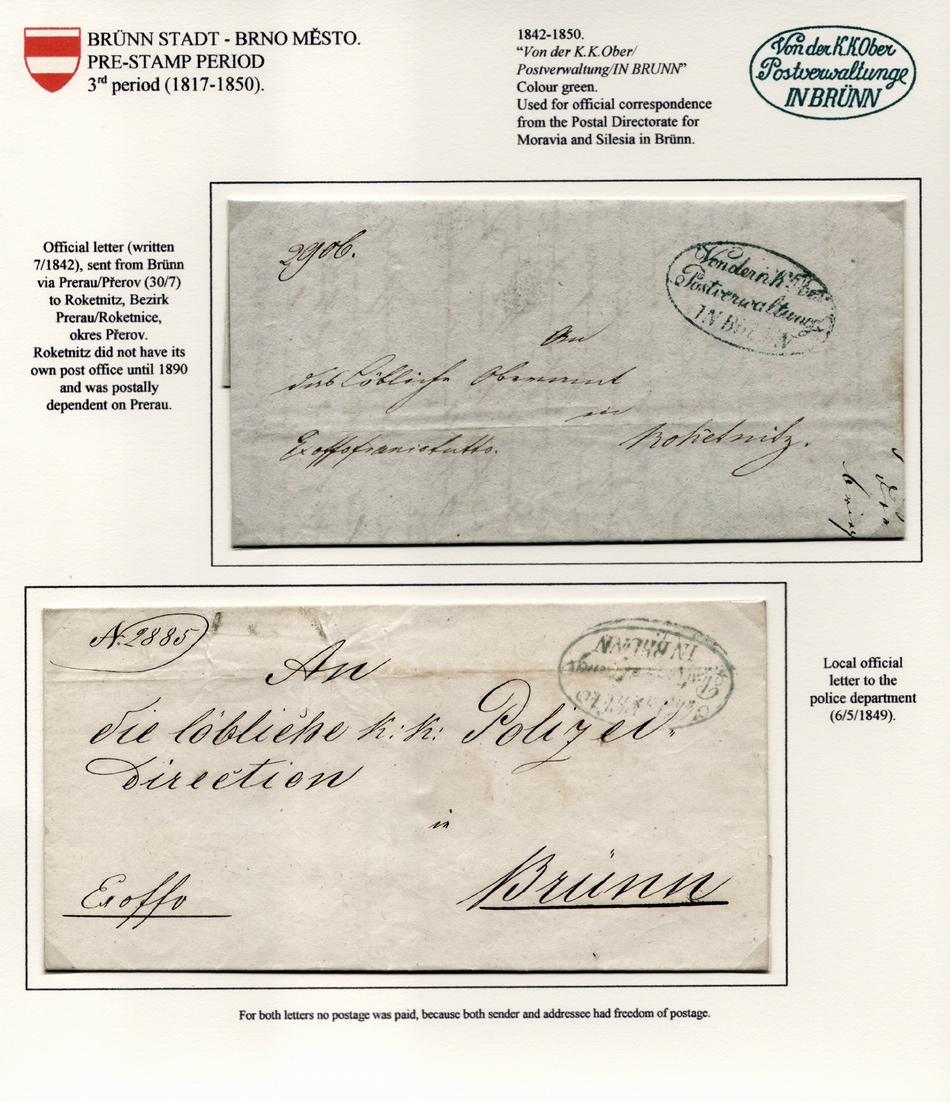 BRÜNN STADT - BRNO MĚSTO.
PRE-STAMP PERIOD
3rd period (1817-1850).
1842-1850.
“Von der K.K.Ober/
Postverwaltung/IN BRUNN”
Colour green.
Used for official correspondence
from the Postal Directorate for
Moravia and Silesia in Brünn.
Von der K.K Ober
Postverwaltunge
IN BRÜNN
Official letter (written
7/1842), sent from Brünn
via Prerau/Přerov (30/7)
to Roketnitz, Bezirk
Prerau/Roketnice,
okres Přerov.
Roketnitz did not have its
own post office until 1890
and was postally
dependent on Prerau.
2906.
Von der k.k. Ober
Postverwaltung
IN BRÜNN
An
das löbliche Oberamt
in
Roketnitz.
N. 2885
IN BRÜNN
An
die löbliche k: k: Polizei-
Direction
in
Brünn
Exoffo
Local official
letter to the
police department
(6/5/1849).
For both letters no postage was paid, because both sender and addressee had freedom of postage.